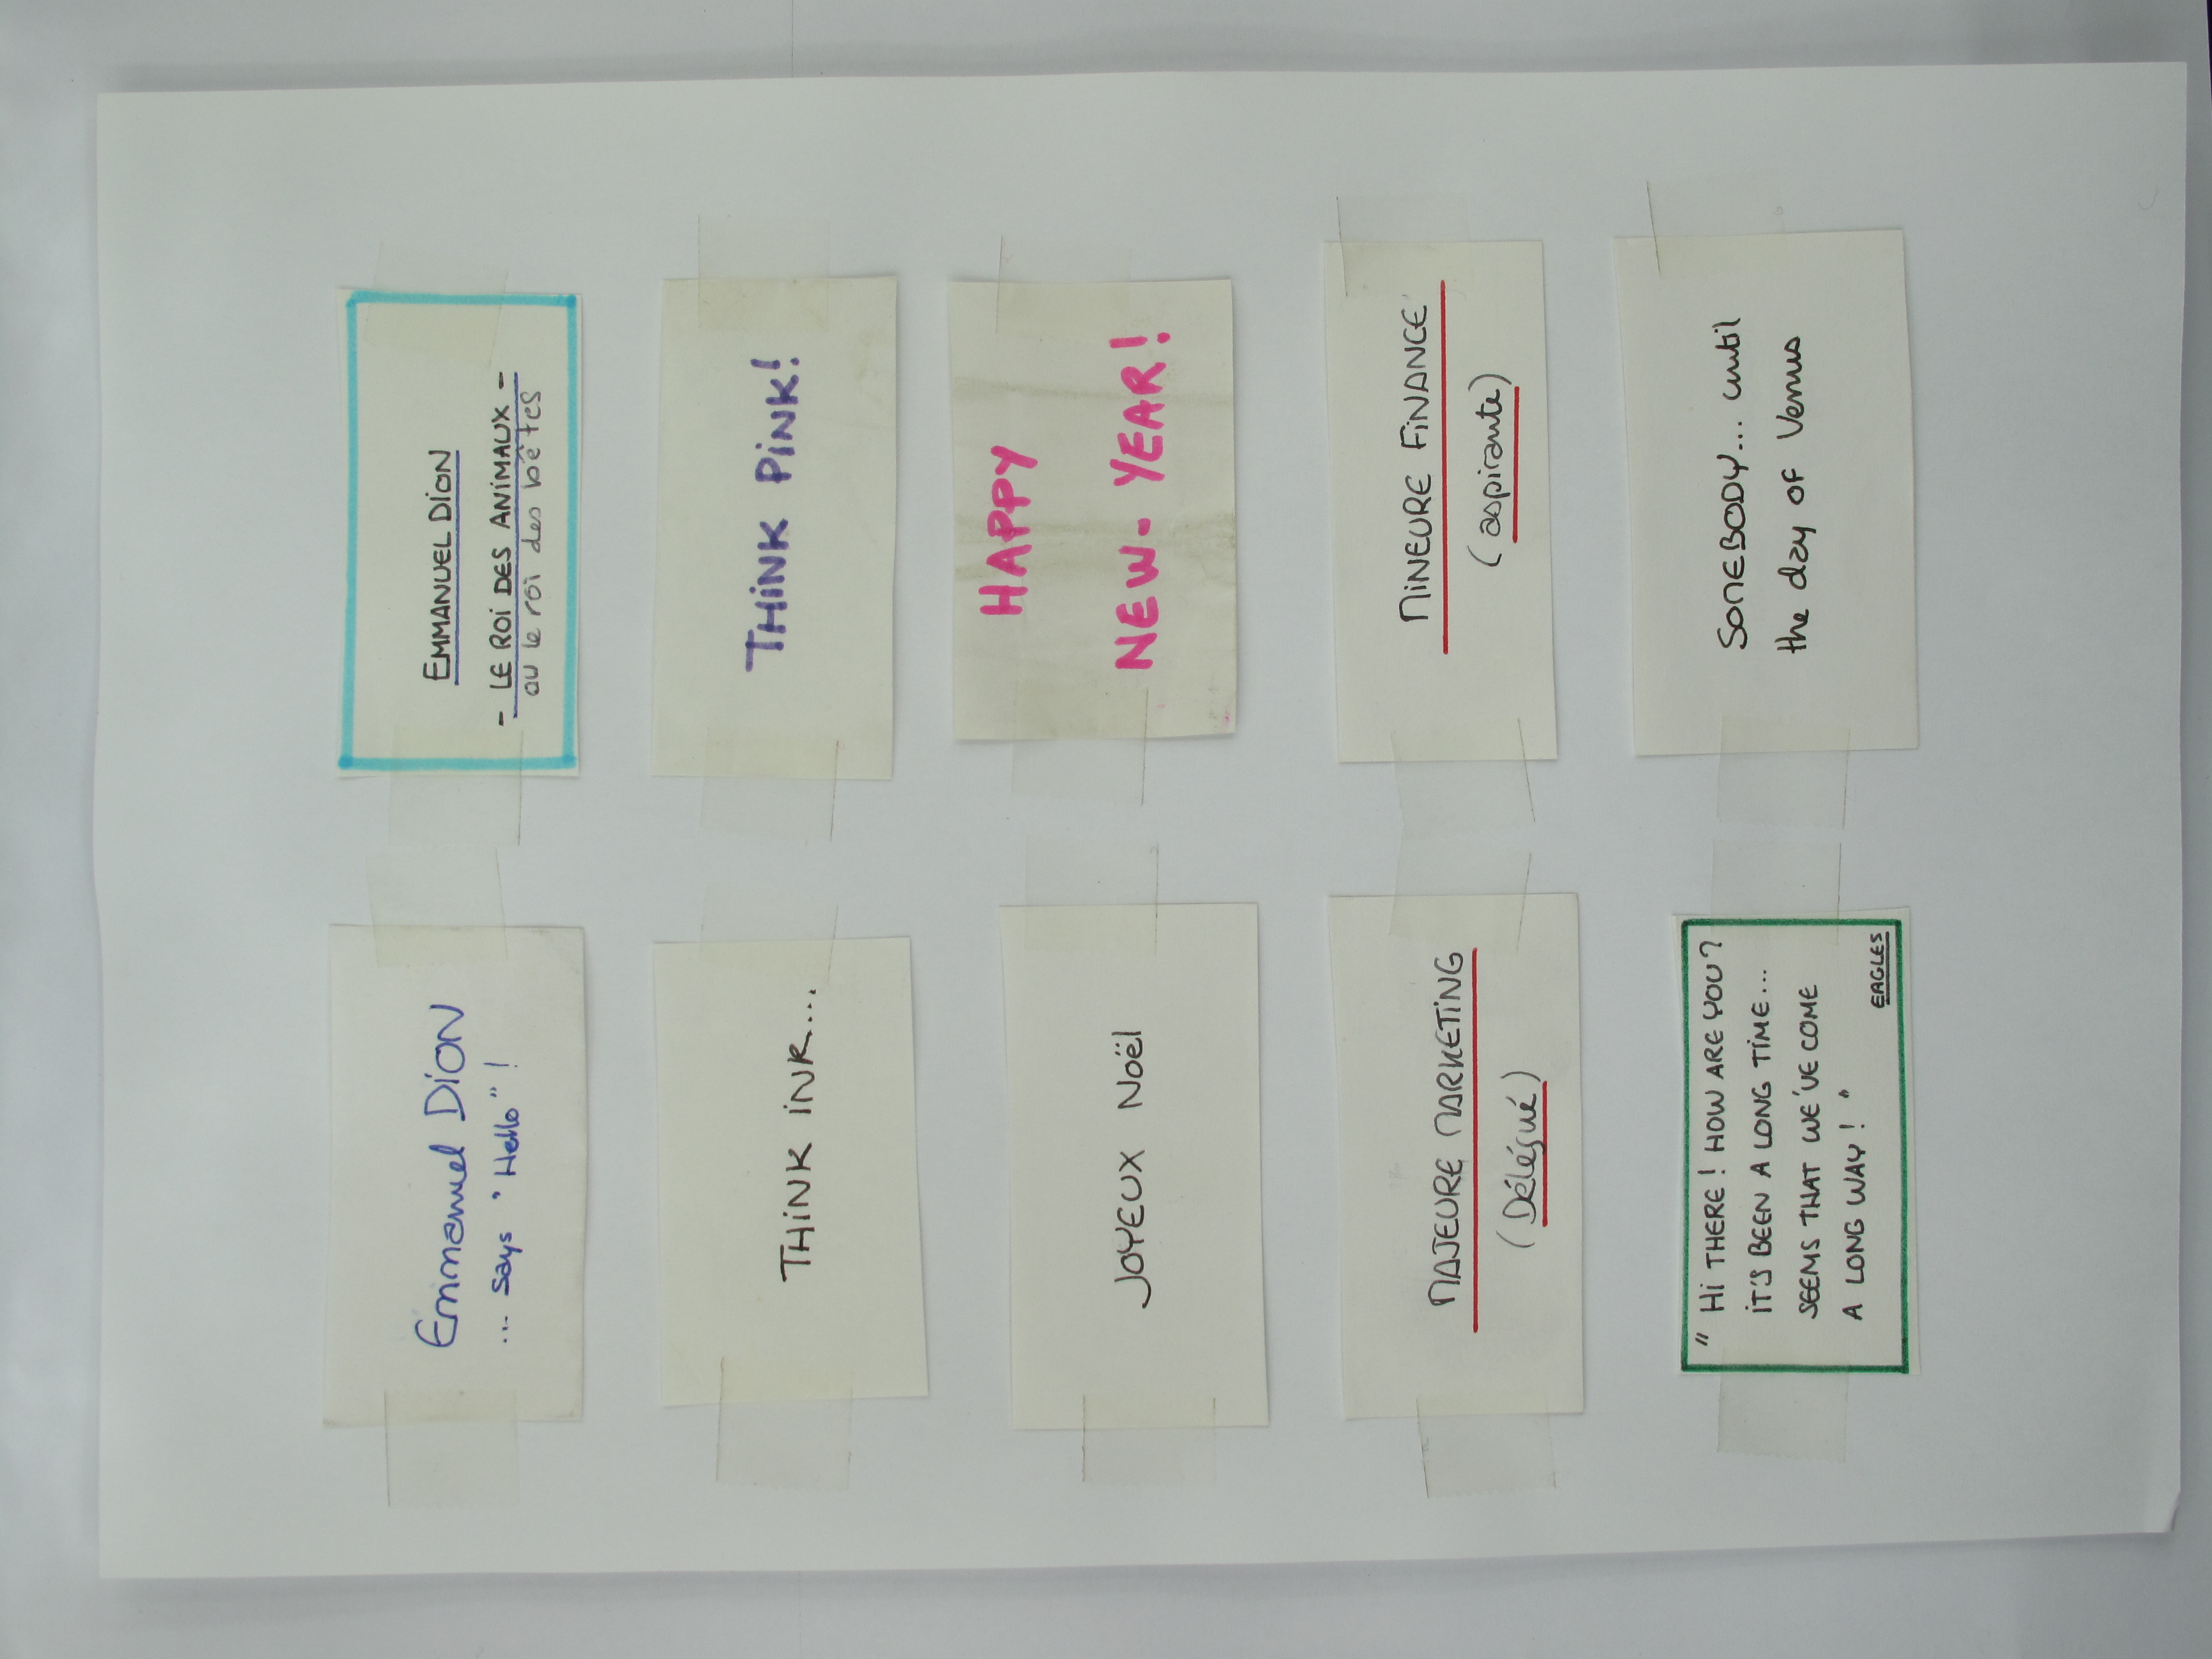 Emmanuel DiON
... Says " Hello " !
EMMANUEL DiON
- LE ROi DES ANiMAUX -
ou le roi des bêtes
THiNK iNK...
THiNK PiNK!
JOYEUX Noël
HAPPY
NEW-YEAR!
MAJEURE MARKETiNG
(Délégué)
MiNEURE FiNANCE
(aspirante)
" Hi THERE ! HOW ARE YOU ?
iT'S BEEN A LONG TiME...
SEEMS THAT WE'VE COME
A LONG WAY ! "
EAGLES
SOMEBODY... until
the day of Venus